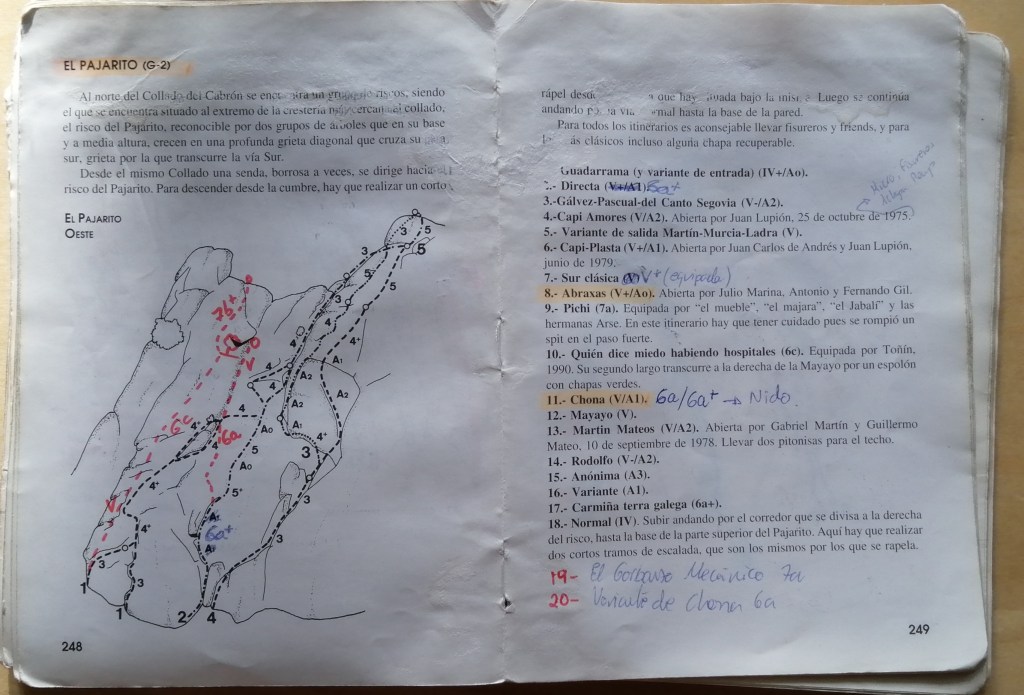 EL PAJARITO (G-2)
Al norte del Collado del Cabrón se encuentra un grupo de riscos, siendo
el que se encuentra situado al extremo de la crestería más cercana al collado,
el risco del Pajarito, reconocible por dos grupos de árboles que en su base
y a media altura, crecen en una profunda grieta diagonal que cruza su cara
sur, grieta por la que transcurre la vía Sur.
Desde el mismo Collado una senda, borrosa a veces, se dirige hacia el
risco del Pajarito. Para descender desde la cumbre, hay que realizar un corto
EL PAJARITO
OESTE
3
5
3
5
5
5
7b+
4
4+
V
4
A1
4
A2
A2
6c
4
4+
A0
A1
4+
6a
4
5
3
3
4+
A0
V
5+
3
4+
A1
6a+
3
3
3
1
1
2
4
248
rápel desde que hay bajo la misma. Luego se continúa
andando por la vía normal hasta la base de la pared.
Para todos los itinerarios es aconsejable llevar fisureros y friends, y para
los más clásicos incluso alguna chapa recuperable.
Guadarrama (y variante de entrada) (IV+/Ao).
2.- Directa (V+/A1). 6a+
3.-Gálvez-Pascual-del Canto Segovia (V-/A2).
4.-Capi Amores (V/A2). Abierta por Juan Lupión, 25 de octubre de 1975.
5.- Variante de salida Martín-Murcia-Ladra (V).
6.- Capi-Plasta (V+/A1). Abierta por Juan Carlos de Andrés y Juan Lupión,
junio de 1979.
7.- Sur clásica (V) V+ (equipada)
8.- Abraxas (V+/Ao). Abierta por Julio Marina, Antonio y Fernando Gil.
9.- Pichi (7a). Equipada por “el mueble”, “el majara”, “el Jabalí” y las
hermanas Arse. En este itinerario hay que tener cuidado pues se rompió un
spit en el paso fuerte.
10.- Quién dice miedo habiendo hospitales (6c). Equipada por Toñín,
1990. Su segundo largo transcurre a la derecha de la Mayayo por un espolón
con chapas verdes.
11.- Chona (V/A1). 6a/6a+ → Nido.
12.- Mayayo (V).
13.- Martin Mateos (V/A2). Abierta por Gabriel Martín y Guillermo
Mateo, 10 de septiembre de 1978. Llevar dos pitonisas para el techo.
14.- Rodolfo (V-/A2).
15.- Anónima (A3).
16.- Variante (A1).
17.- Carmiña terra galega (6a+).
18.- Normal (IV). Subir andando por el corredor que se divisa a la derecha
del risco, hasta la base de la parte superior del Pajarito. Aquí hay que realizar
dos cortos tramos de escalada, que son los mismos por los que se rapela.
19- El Mecánico 7a
20- Variante de Chona 6a
249